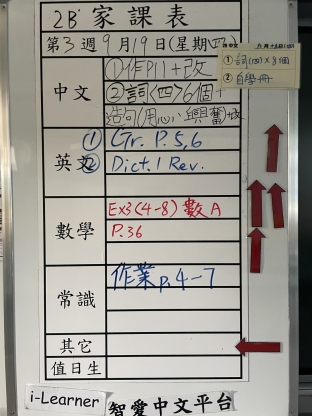 2B 家課表
第3週9月19日(星期四)
中文
①作P11+改
②詞<四>6個+
造句(用心、興奮)+改
①詞(四)×8個
②自學冊
英文
① Gr. P.5,6
② Dict.1 Rev.
數學
Ex3(4-8) 數A
P.36
常識
作業p.4-7
其它
值日生
i-Learner
智愛中文平台